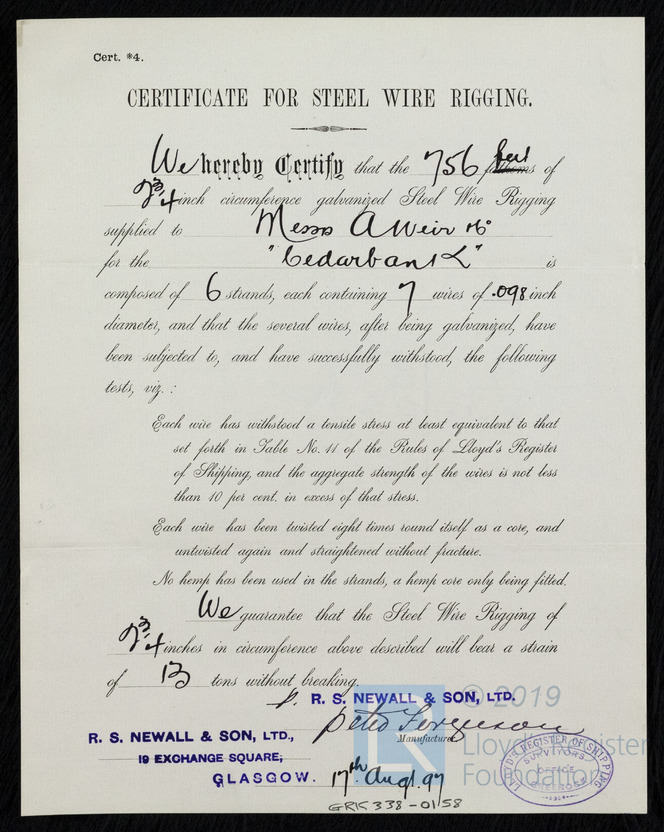 Cert. *4.
CERTIFICATE FOR STEEL WIRE RIGGING.
We hereby Certify that the 756 feet fathoms of
2 3/4 inch circumference galvanized Steel Wire Rigging
supplied to Messrs A Weir & Co
for the "Cedarbank" is
composed of 6 strands, each containing 7 wires of .098 inch
diameter, and that the several wires, after being galvanized, have
been subjected to, and have successfully withstood, the following
tests, viz. :
Each wire has withstood a tensile stress at least equivalent to that
set forth in Table No. 11 of the Rules of Lloyd's Register
of Shipping, and the aggregate strength of the wires is not less
than 10 per cent. in excess of that stress.
Each wire has been twisted eight times round itself as a core, and
untwisted again and straightened without fracture.
No hemp has been used in the strands, a hemp core only being fitted.
We guarantee that the Steel Wire Rigging of
2 3/4 inches in circumference above described will bear a strain
of 13 tons without breaking.
p. R. S. NEWALL & SON, LTD.
© 2019
Peter Ferguson
R. S. NEWALL & SON, LTD.,
Manufacturer
Lloyd's Register
Foundation
19 EXCHANGE SQUARE,
GLASGOW.
17th Augt. 97
LLOYD'S REGISTER OF SHIPPING
SURVEYORS
OFFICE
GREENOCK
GRK 338-0158